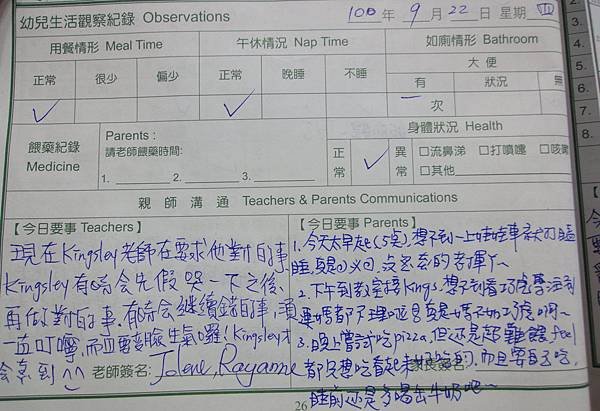 幼兒生活觀察紀錄 Observations 100 年 9 月 22 日 星期 四
用餐情形 Meal Time 午休情況 Nap Time 如廁情形 Bathroom
正常 很少 偏少 正常 晚睡 不睡 大 便
有 狀況 無
一 次
餵藥紀錄 Medicine
Parents :
請老師餵藥時間:
1. 2. 3.
身體狀況 Health
正常 異常 □流鼻涕 □打噴嚏 □咳嗽
□其他
親 師 溝 通 Teachers & Parents Communications
【今日要事 Teachers】
現在Kingsley老師在要求他對的事,
Kingsley有時会先假哭一下之後,
再做對的事.有時会繼續錯的事,須
一直叮嚀,而且要變臉生氣囉!Kingsley才
会 ^^
老師簽名: Jolene, Rayanne
【今日要事 Parents】
1.今天太早起(5點),想不到一上娃娃車就打瞌
睡,
2.下午到教室接Kings,想不到看巧虎學
媽都不理 是 媽 巧虎啊~
3.晚上嘗試吃pizza,但还是超難 feel
都只想吃看起來好吃的,而且要自己吃,
家長簽名:
睡前还是多喝缶牛奶吧~
26
2.
3.
4.
5.
6.
7.
8.